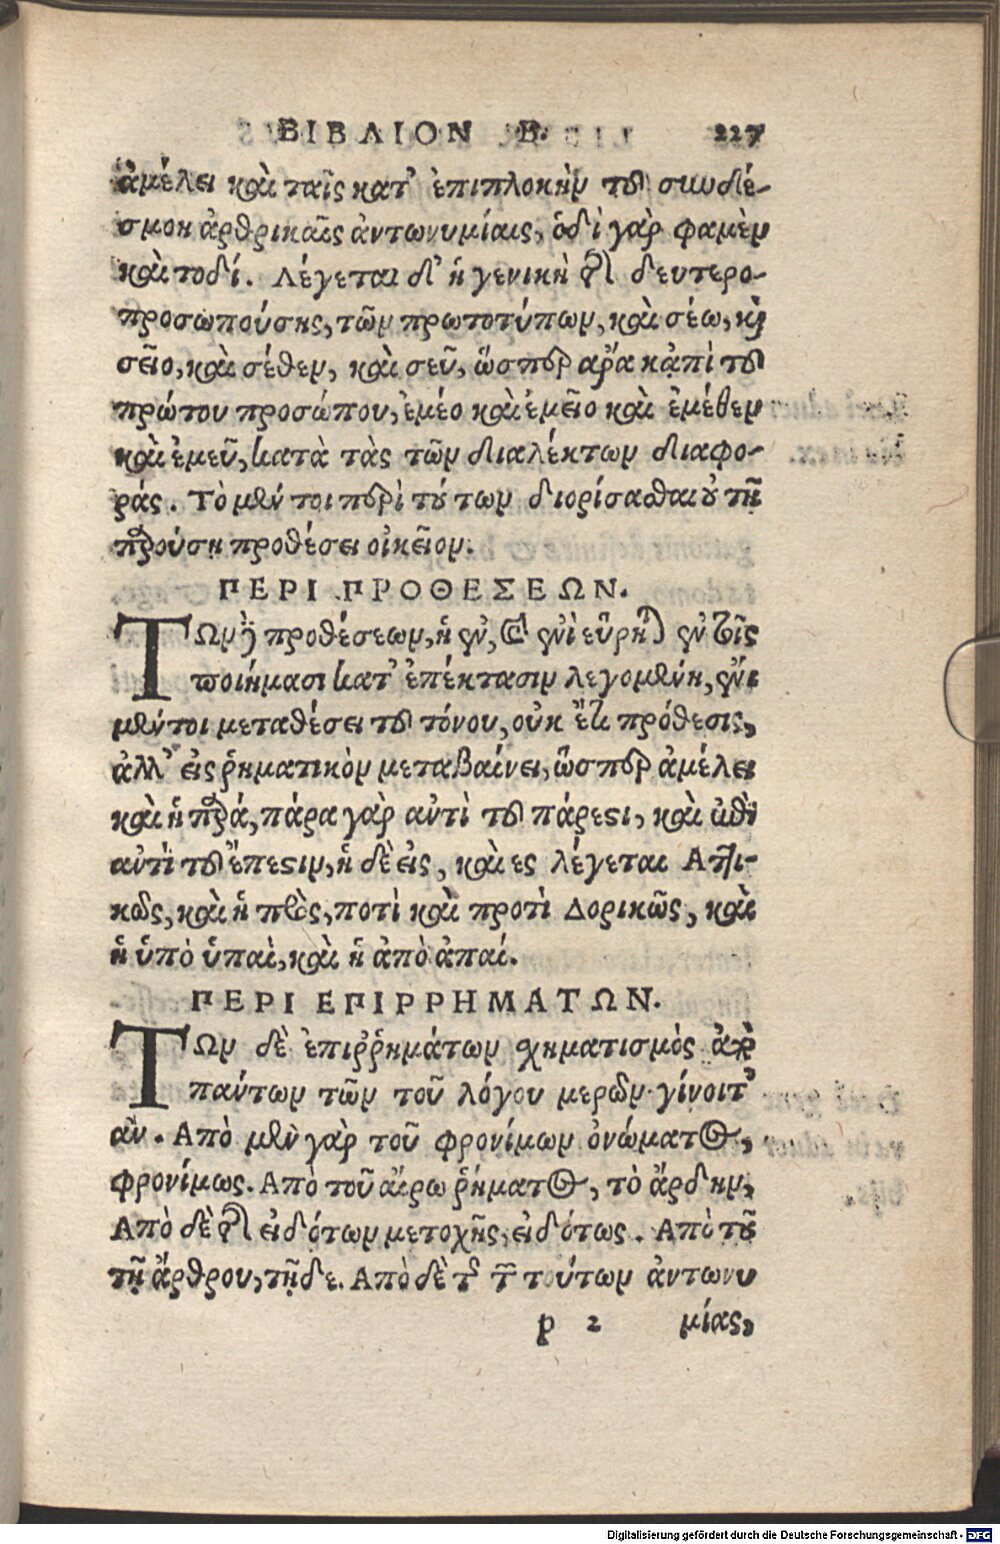 ΒΙΒΛΙΟΝ Β. 227
ἀμέλει καὶ ταῖς κατ' ἐπιπλοκὴν τοῦ συνδέ-
σμου ἀρθρικαῖς ἀντωνυμίαις, ὁδὶ γὰρ φαμὲν
καὶ τοδί. Λέγεται δ' ἡ γενικὴ τῆς δευτερο-
προσωπούσης, τῶν πρωτοτύπων, καὶ σέω, καὶ
σεῖο, καὶ σέθεν, καὶ σεῦ, ὥσπερ ἄρα κἀπὶ τοῦ
πρώτου προσώπου, ἐμέο καὶ ἐμεῖο καὶ ἐμέθεν
καὶ ἐμεῦ, κατὰ τὰς τῶν διαλέκτων διαφο-
ράς. Τὸ μέν τοι περὶ τούτων διορίσασθαι οὐ τῇ
παρούσῃ προθέσει οἰκεῖον.
ΠΕΡΙ ΠΡΟΘΕΣΕΩΝ.
ΤΩν δὲ προθέσεων, ἡ ἐν, καὶ ἐνὶ εὕρηται ἐν τοῖς
ποιήμασι κατ' ἐπέκτασιν λεγομένη, ἔνι
μέντοι μεταθέσει τοῦ τόνου, οὐκ ἔστι πρόθεσις,
ἀλλ' εἰς ῥηματικὸν μεταβαίνει, ὥσπερ ἀμέλει
καὶ ἡ παρά, πάρα γὰρ αὐτὶ τοῦ πάρεστι, καὶ ἐπὶ
αὐτὶ τοῦ ἔπεστιν, ἡ δὲ εἰς, καὶ ες λέγεται Αττι-
κῶς, καὶ ἡ πρὸς, ποτὶ καὶ προτὶ Δορικῶς, καὶ
ἡ ὑπὸ ὑπαὶ, καὶ ἡ ἀπὸ ἀπαί.
ΠΕΡΙ ΕΠΙΡΡΗΜΑΤΩΝ.
ΤΩν δὲ ἐπιῤῥημάτων σχηματισμὸς ἀπὸ
πάντων τῶν τοῦ λόγου μερῶν γίνοιτ'
αν. Απὸ μὲν γὰρ τοῦ φρονίμων ὀνώματος,
φρονίμως. Απὸ τοῦ αἴρω ῥήματος, τὸ ἄρδην,
Απὸ δὲ τῆς εἰδότων μετοχῆς, εἰδότως. Απὸ τοῦ
τῇ ἄρθρου, τῇδε. Απὸ δὲ τῆς τῶν τούτων ἀντωνυ
p 2 μίας,